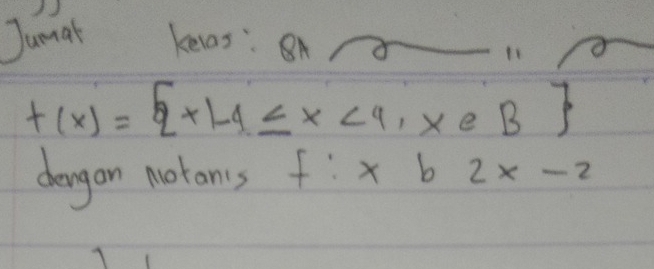 Jumat kelas: 8A "
f(x) = {x|-4 ≤ x < 4, x e B }
dengan notanis f : x b 2x - 2